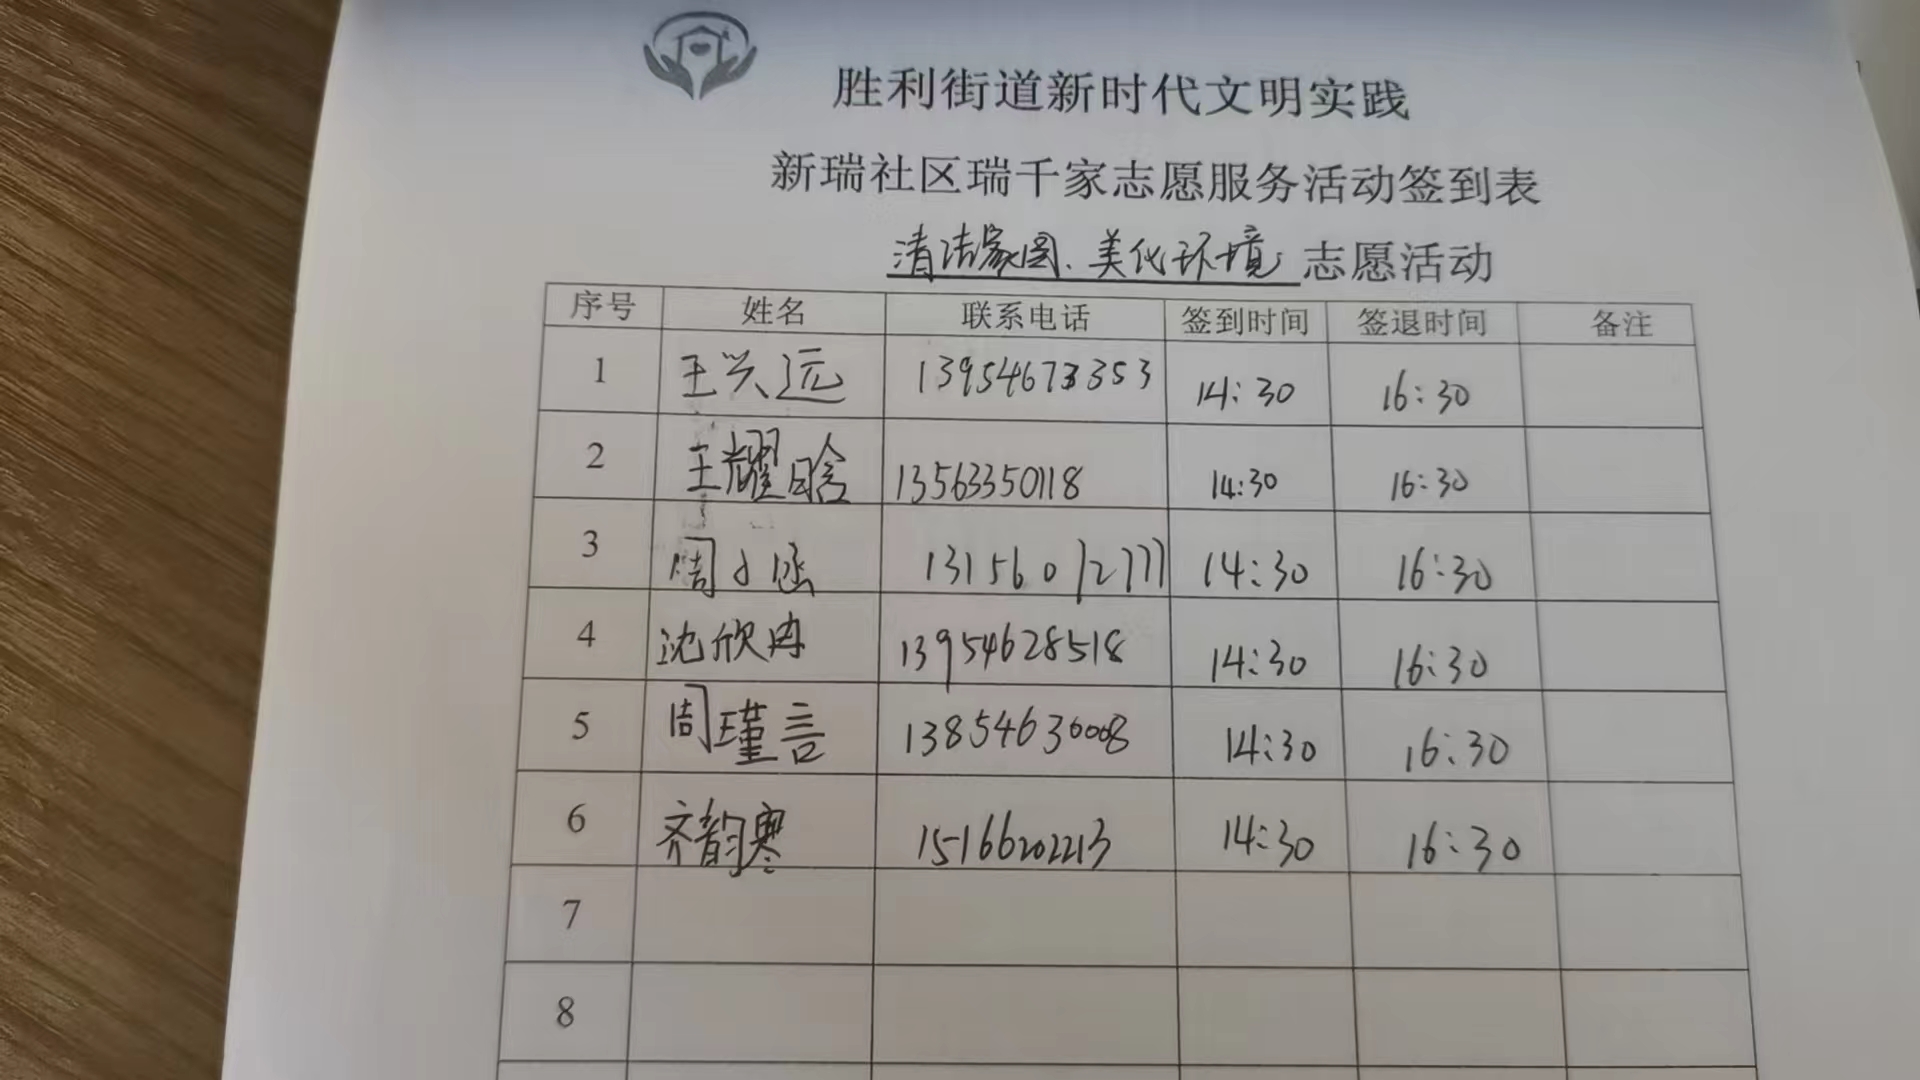 胜利街道新时代文明实践
新瑞社区瑞千家志愿服务活动签到表
清洁家园、美化环境 志愿活动
序号 姓名 联系电话 签到时间 签退时间 备注
1 王兴远 13954673353 14:30 16:30
2 王耀晗 13563350118 14:30 16:30
3 周小涵 13156012777 14:30 16:30
4 沈欣冉 13954628518 14:30 16:30
5 周瑾言 13854636008 14:30 16:30
6 齐韵寒 15166202213 14:30 16:30
7
8